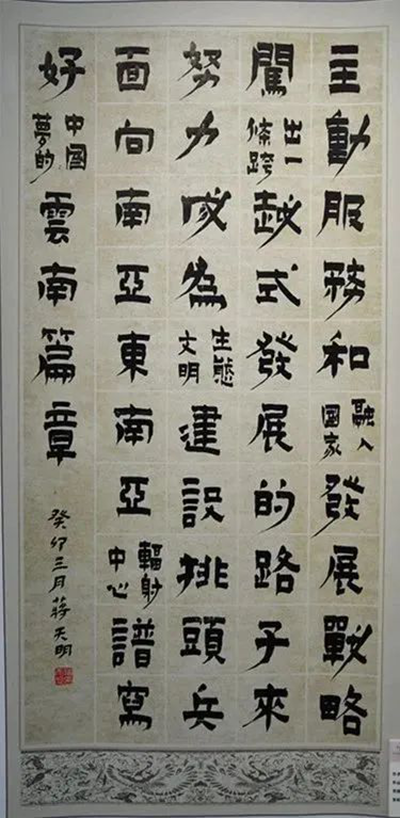 主動服務和融入國家發展戰略
闖出一條跨越式發展的路子來
努力成為生態文明建設挑頭兵
面向南亞東南亞輻射中心譜寫
好中國夢的雲南篇章
癸卯三月蔣天明